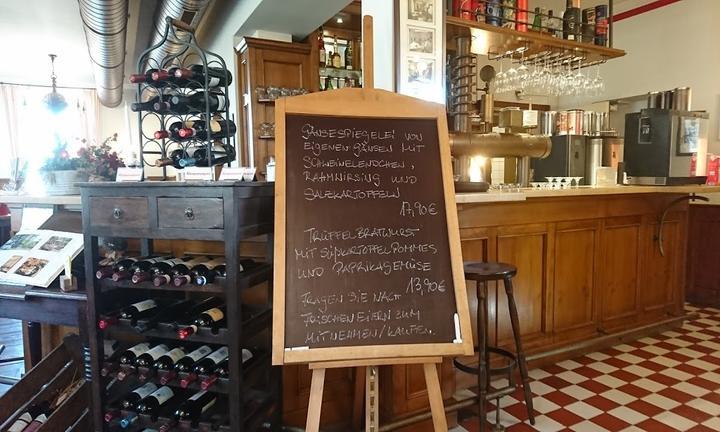 GÄNSESPIEGELEI VON
EIGENEN GÄNSEN MIT
SCHWEINELENDCHEN,
RAHMWIRSING UND
SALZKARTOFFELN
17,90€
TRÜFFELBRATWURST
MIT SÜßKARTOFFELPOMMES
UND PAPRIKAGEMÜSE
13,90€
FRAGEN SIE NACH
FRISCHEN EIERN ZUM
MITNEHMEN/KAUFEN.